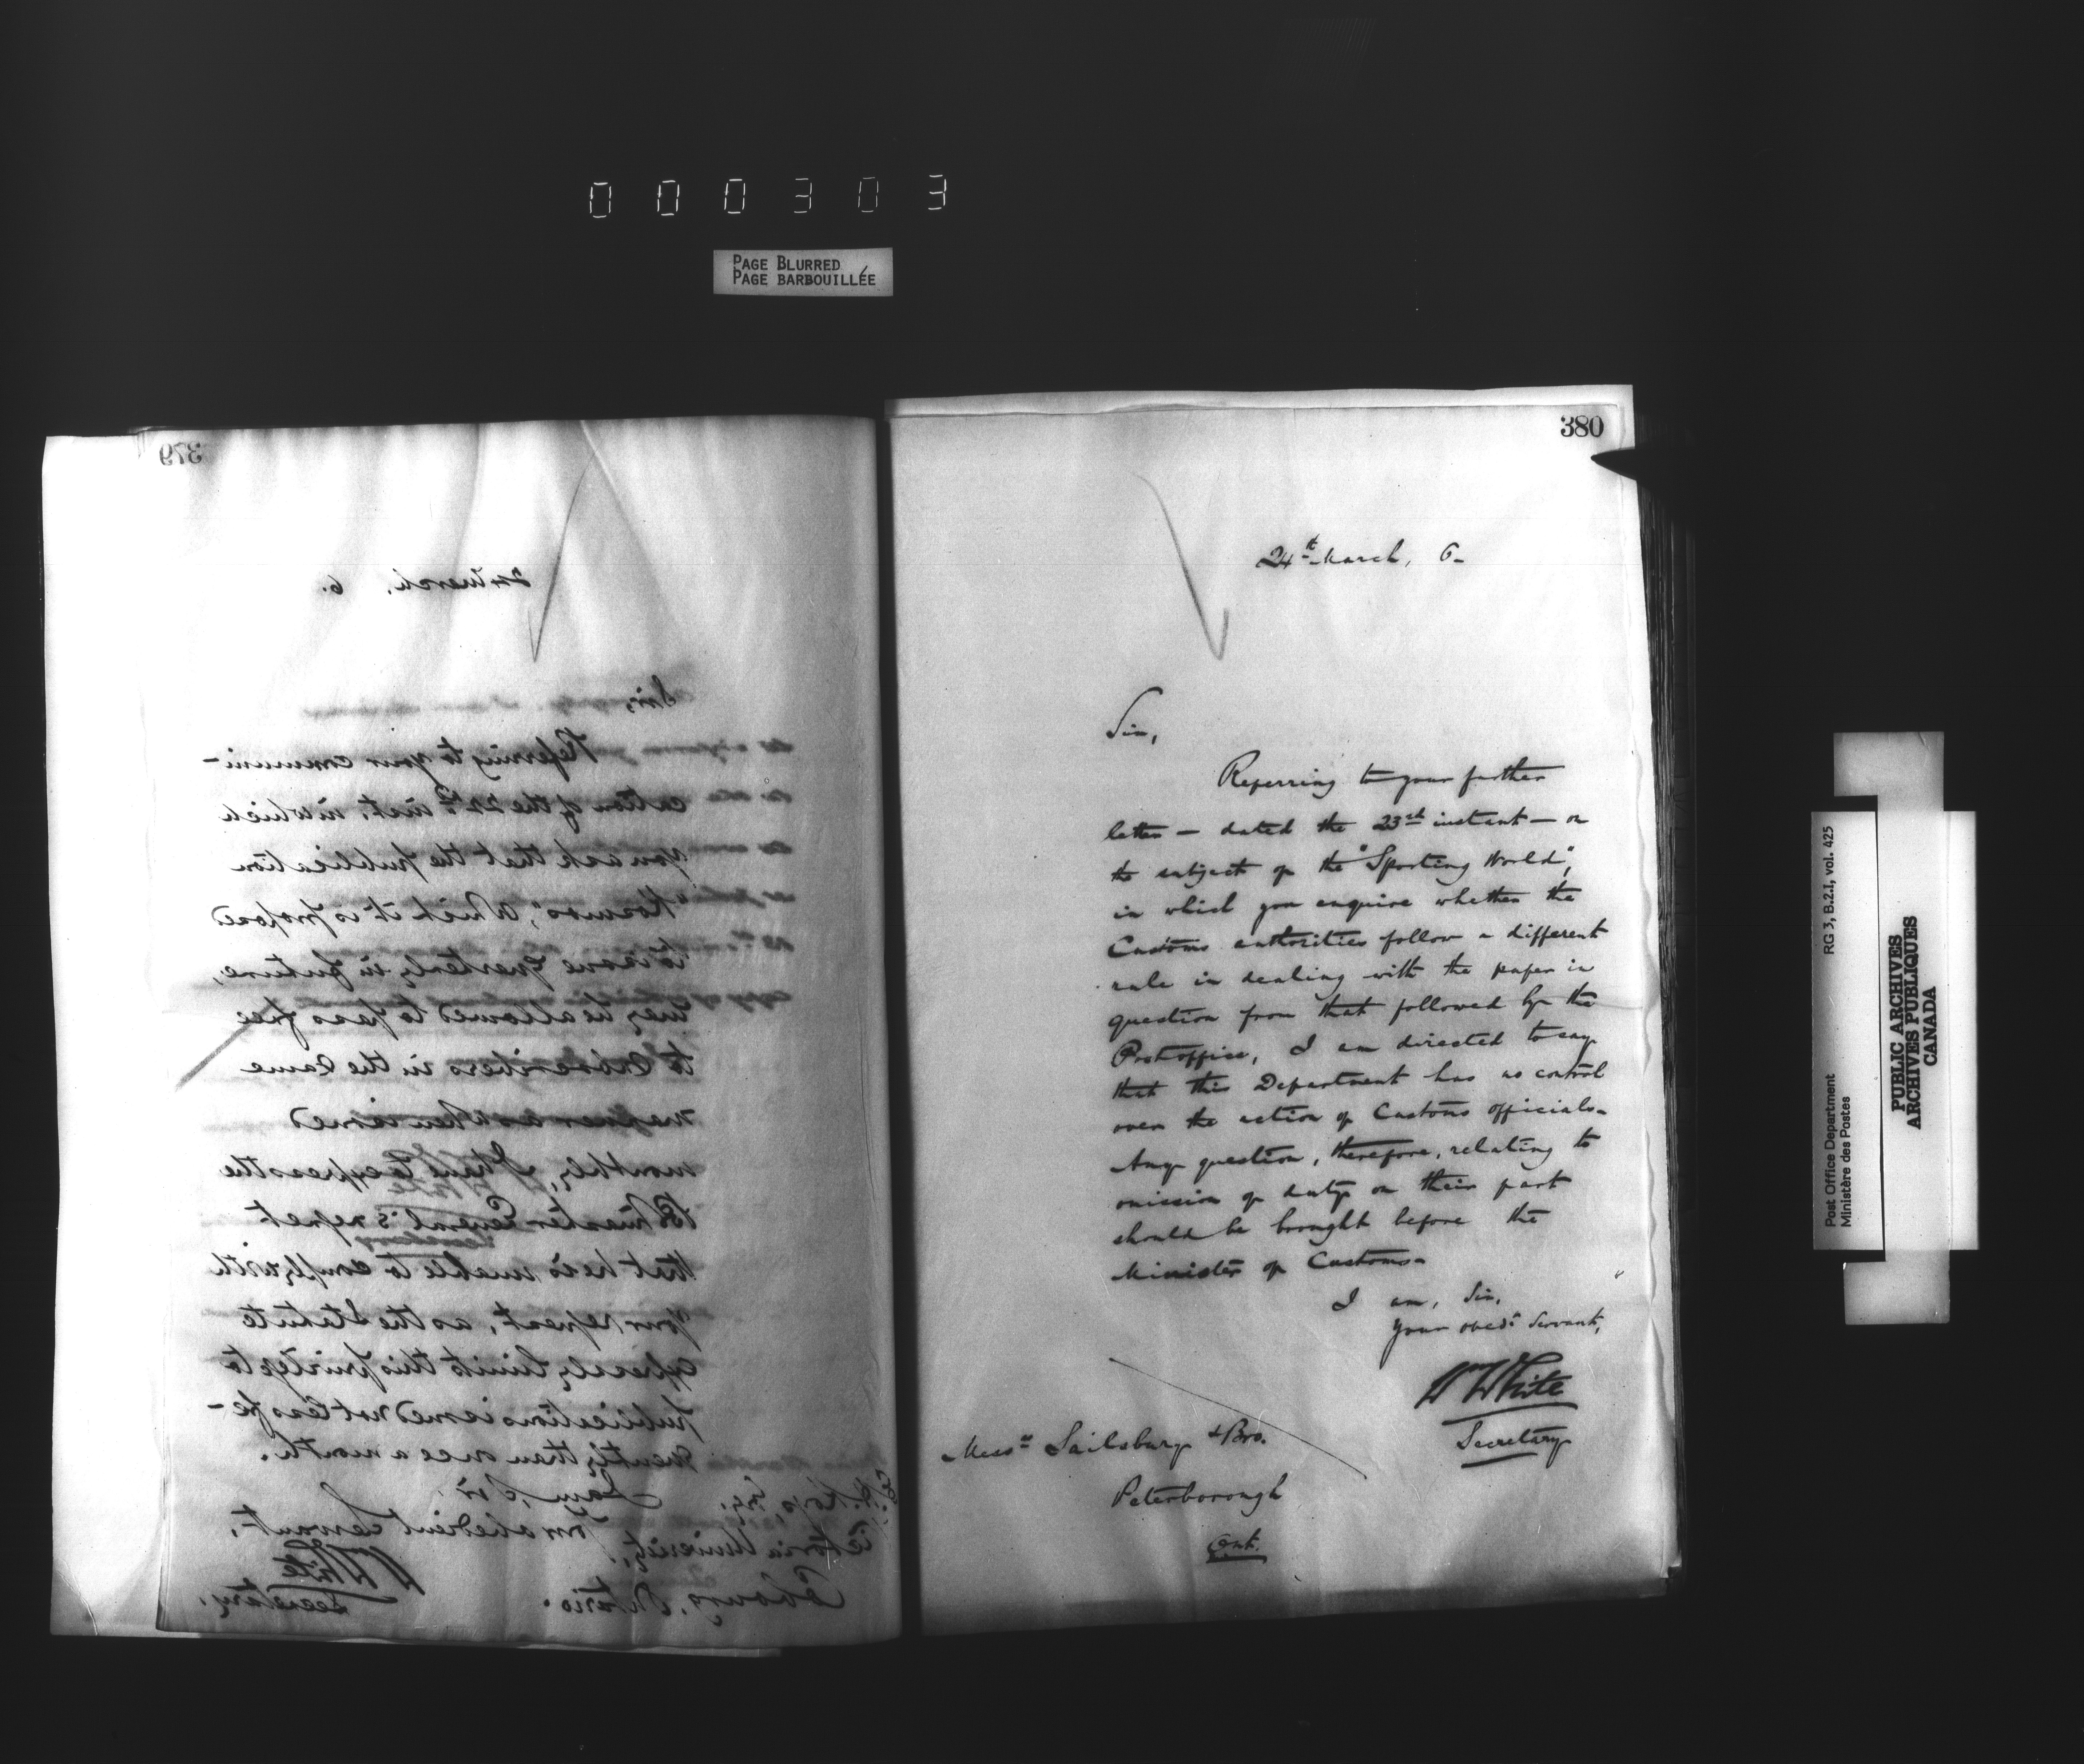 000303
PAGE BLURRED
PAGE BARBOUILLÉE
379
24 March, 6.
Sir,
Referring to your communi-
cation of the 22nd inst, in which
you ask that the publication
"Kosmos", which it is proposed
to issue quarterly in future,
may be allowed to pass free
to subscribers in the same
manner as when issued
monthly, I have to express the
Postmaster General's regret
that he is unable to comply with
your request, as the Statute
expressly limits this privilege to
publications issued not less fre-
quently than once a month.
I am, Sir,
Your obedient Servant,
WWhite
Secretary.
Esq.
Victoria University,
Cobourg, Ontario.
380
24th March, 6-
Sir,
Referring to your further
letter - dated the 23rd instant - on
the subject of the "Sporting World",
in which you enquire whether the
Customs authorities follow a different
rule in dealing with the paper in
question from that followed by the
Post office, I am directed to say
that this Department has no control
over the action of Customs officials-
Any question, therefore, relating to
omission of duty on their part
should be brought before the
Minister of Customs-
I am, Sir,
Your obedt Servant,
WmWhite
Secretary
Messrs Sailsbury & Bro.
Peterborough
Ont.
Post Office Department
Ministère des Postes
RG 3, B.2.I, vol. 425
PUBLIC ARCHIVES
ARCHIVES PUBLIQUES
CANADA